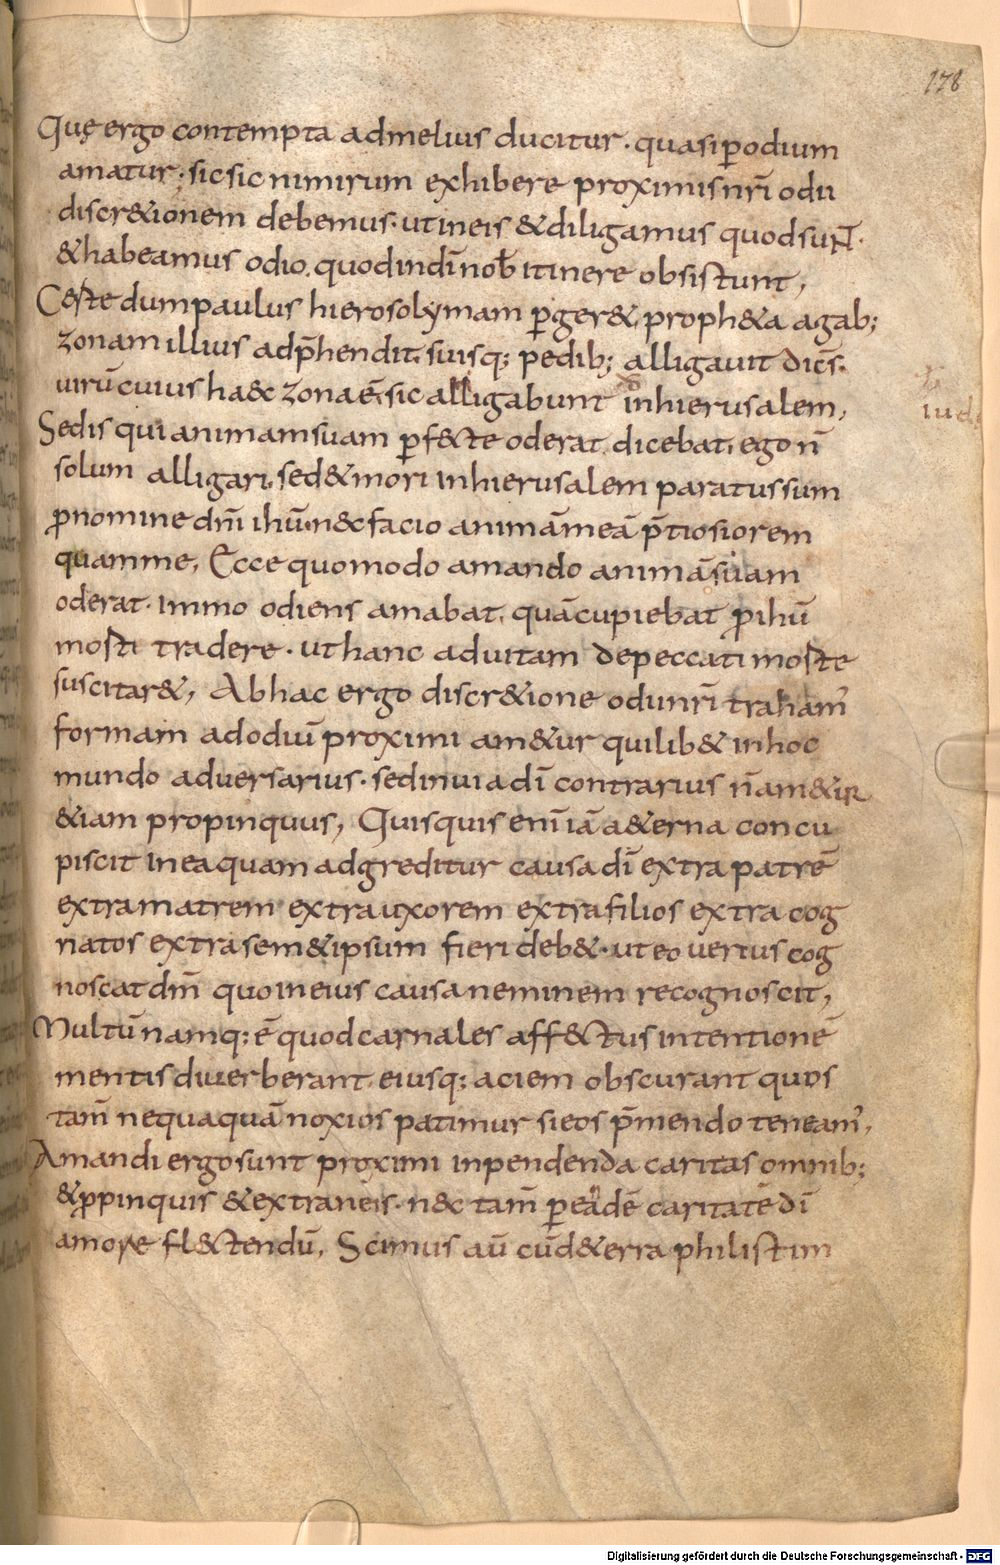 178
Quę ergo contempta admelius ducitur · quasi ꝑodium
amatur; sic sic nimirum exhibere proximis nr̄i odii
discr&ionem debemus · ut ineis &diligamus quod suNT ·
&habeamus odio, quod indī nob̄ itinere obsistunt,
C&te dum paulus hierosolymam ꝑger&, proph&a agab;
zonam illius adp̄hendit, suisq; pedib; alligavit dic̄s ·
uirū cuius h&c zona ē, sic alligabunt inhierusalem,
Sed is qui animam suam ꝑf&te oderat, dicebat, ego n̄
solum alligari, sed & mori inhierusalem paratus sum
ꝓnomine dn̄i ihū, n&c facio animā meā p̄tiosiorem
quam me, Ecce quomodo amando animā suam
oderat · immo odiens amabat, quā cupiebat ꝓ ihū
morti tradere · ut hanc aduitam depeccati morte
suscitar&, Ab hac ergo discr&ione odii nr̄i traham᾽
formam adodiū proximi am&ur quilib& inhoc
mundo adversarius · sed inuia dī contrarius n̄ am&ur
&iam propinquus, Quisquis eni̅ iā a&erna concu
piscit in ea quam adgreditur causa dī extra patrē
extra matrem extra uxorem extra filios extra cog
natos extra sem&ipsum fieri deb& · ut eo uerius cog
noscat dm̄ quo ineius causa neminem recognoscit,
Multū namq; ē quod carnales aff&tus intentionē
mentis diuerberant eiusq; aciem obscurant quos
tam̄ nequaquā noxios patimur si eos p̄mendo teneam᾽,
Amandi ergo sunt proximi inpendenda caritas omnib;
&ꝓpinquis &extraneis · n&c tam̄ ꝑ eadē caritatē dī
amore fl&tendū, Scimus aū cū d&erra philistim
iud
Digitalisierung gefördert durch die Deutsche Forschungsgemeinschaft - DFG